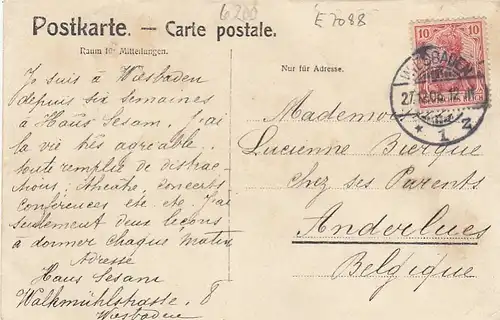 6200
E 7088
Postkarte. — Carte postale.
Raum für Mitteilungen.
Nur für Adresse.
10 10
DEUTSCHES REICH
WIESBADEN
1
Je suis à Wiesbaden
depuis six semaines
à Haus Sesam. J'ai
la vie très agréable,
toute remplie de distrac-
tions: théâtre, concerts
conférences etc. etc. J'ai
seulement deux leçons
à donner chaque matin
Adresse
Haus Sesam
Walkmühlstrasse. 8
Wiesbaden
Mademoiselle
Lucienne Bierque
chez ses Parents
Anderlues
Belgique